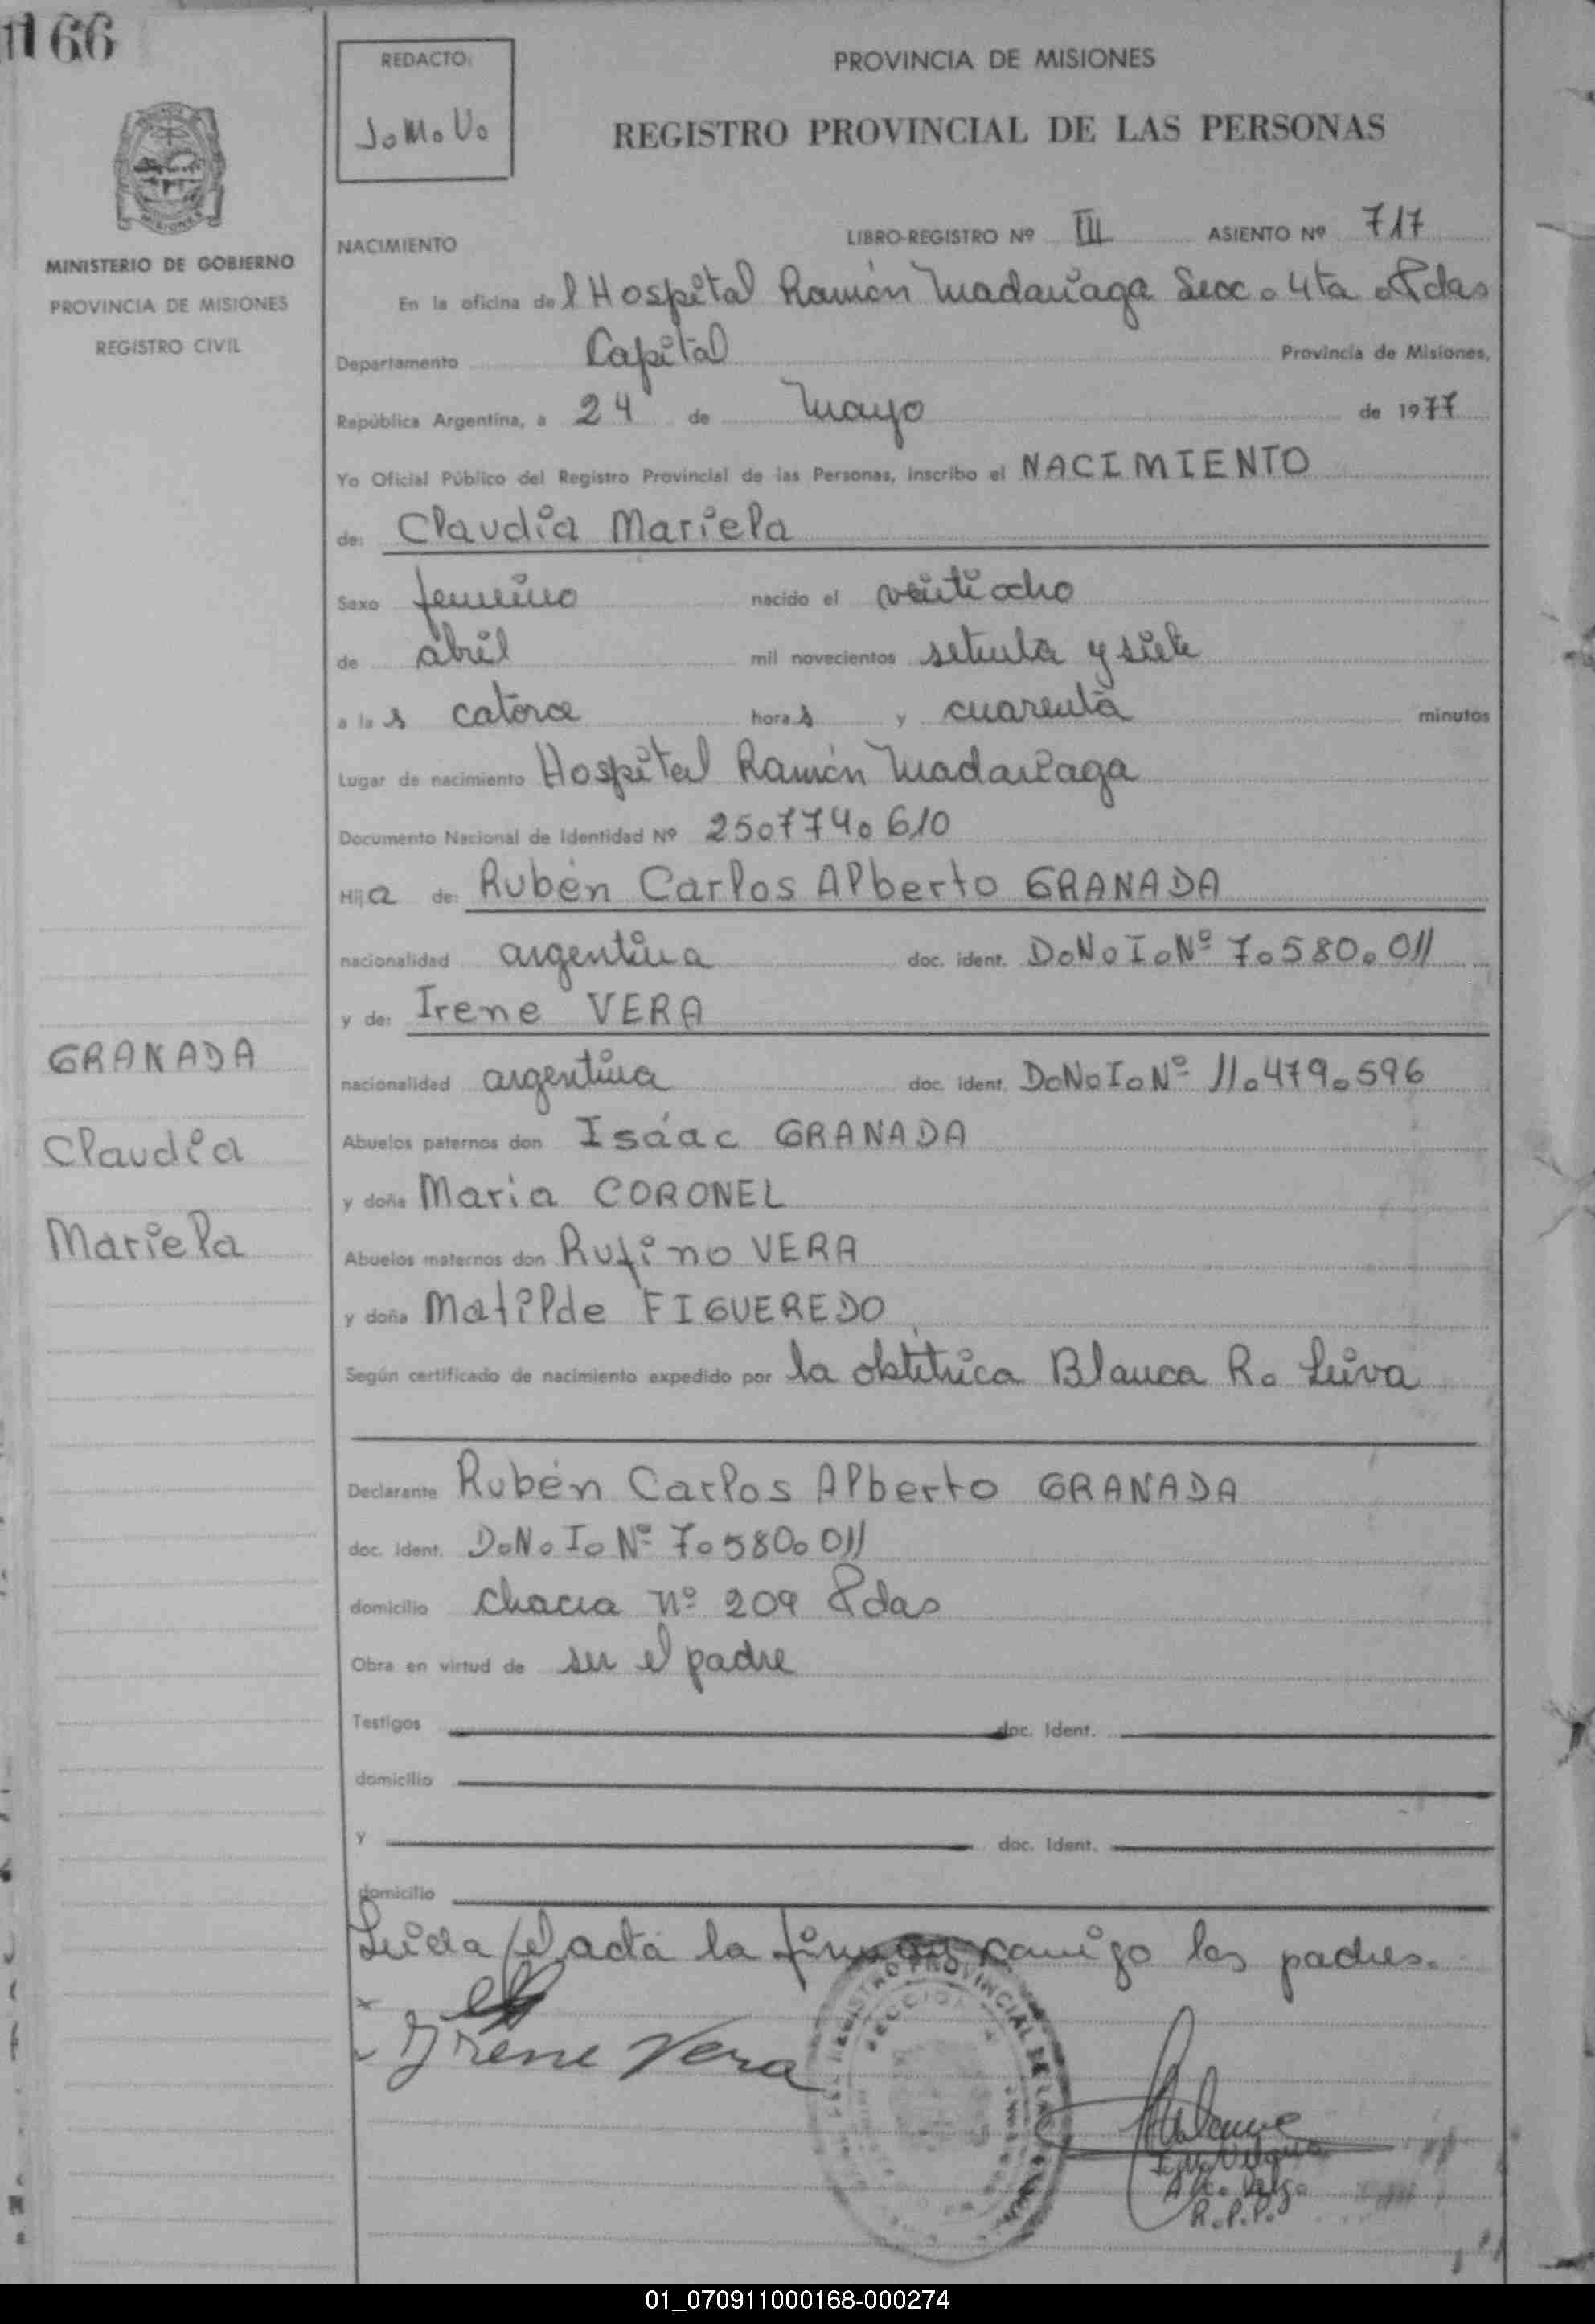 1166
REDACTO:
J.M.V.
PROVINCIA DE MISIONES
REGISTRO PROVINCIAL DE LAS PERSONAS
MINISTERIO DE GOBIERNO
PROVINCIA DE MISIONES
REGISTRO CIVIL
NACIMIENTO
LIBRO-REGISTRO Nº III ASIENTO Nº 717
En la oficina del Hospital Ramón Madariaga Secc. 4ta. Pdas
Departamento Capital Provincia de Misiones,
República Argentina, a 24 de Mayo de 1977
Yo Oficial Público del Registro Provincial de las Personas, inscribo el NACIMIENTO
de: Claudia Mariela
Sexo femenino nacido el veintiocho
de abril mil novecientos setenta y siete
a las catorce horas y cuarenta minutos
Lugar de nacimiento Hospital Ramón Madariaga
Documento Nacional de Identidad Nº 25.774.610
Hija de: Rubén Carlos Alberto GRANADA
nacionalidad argentina doc. ident. D.N.I.Nº 7.580.011
y de: Irene VERA
nacionalidad argentina doc. ident. D.N.I.Nº 11.479.596
Abuelos paternos don Isáac GRANADA
y doña Maria CORONEL
Abuelos maternos don Rufino VERA
y doña Matilde FIGUEREDO
Según certificado de nacimiento expedido por la obstétrica Blanca R. Leiva
GRANADA
Claudia
Mariela
Declarante Rubén Carlos Alberto GRANADA
doc. ident. D.N.I. Nº 7.580.011
domicilio Chacra nº 209 Pdas
Obra en virtud de ser el padre
Testigos doc. Ident.
domicilio
y doc. Ident.
domicilio
Leida el acta la firman conmigo los padres.
Irene Vera
REGISTRO PROVINCIAL DE LAS
SECCION
R.P.P.
01_070911000168-000274